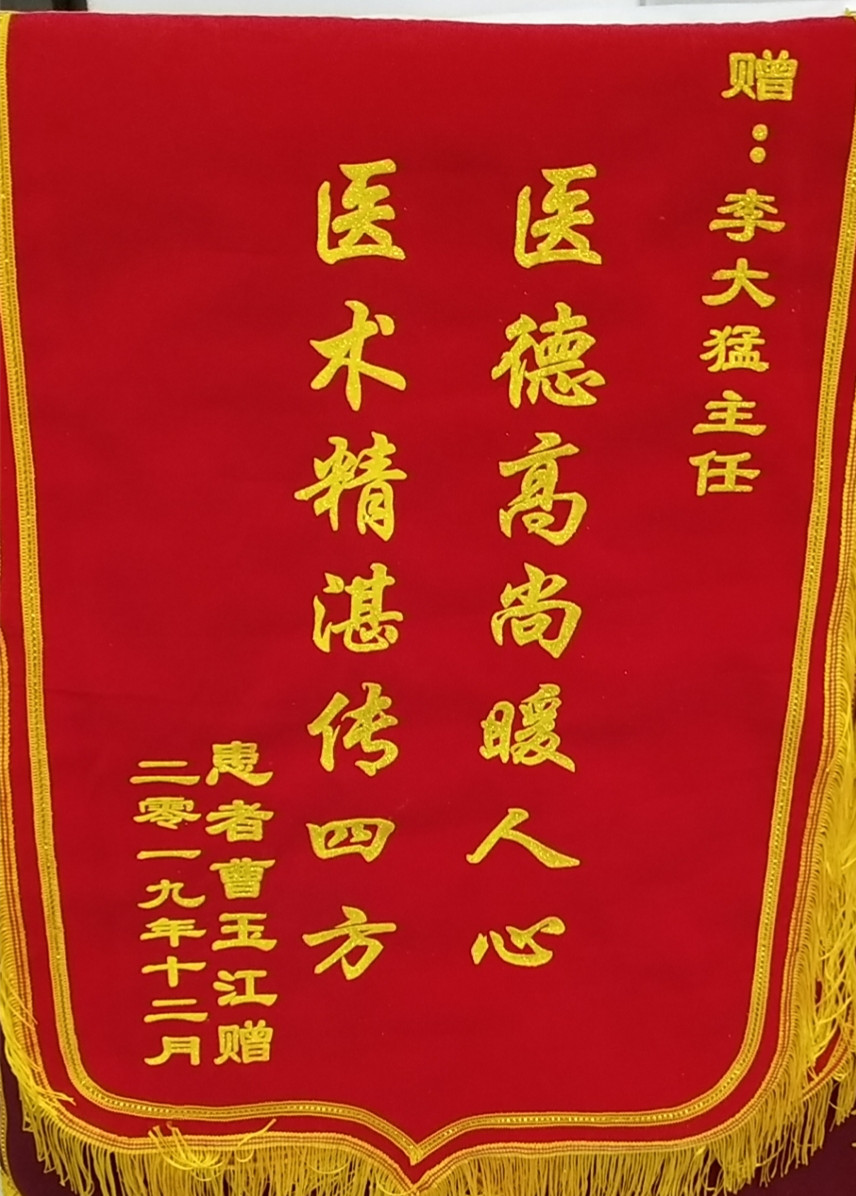 赠：李大猛主任
医德高尚暖人心
医术精湛传四方
患者曹玉江赠
二零一九年十二月